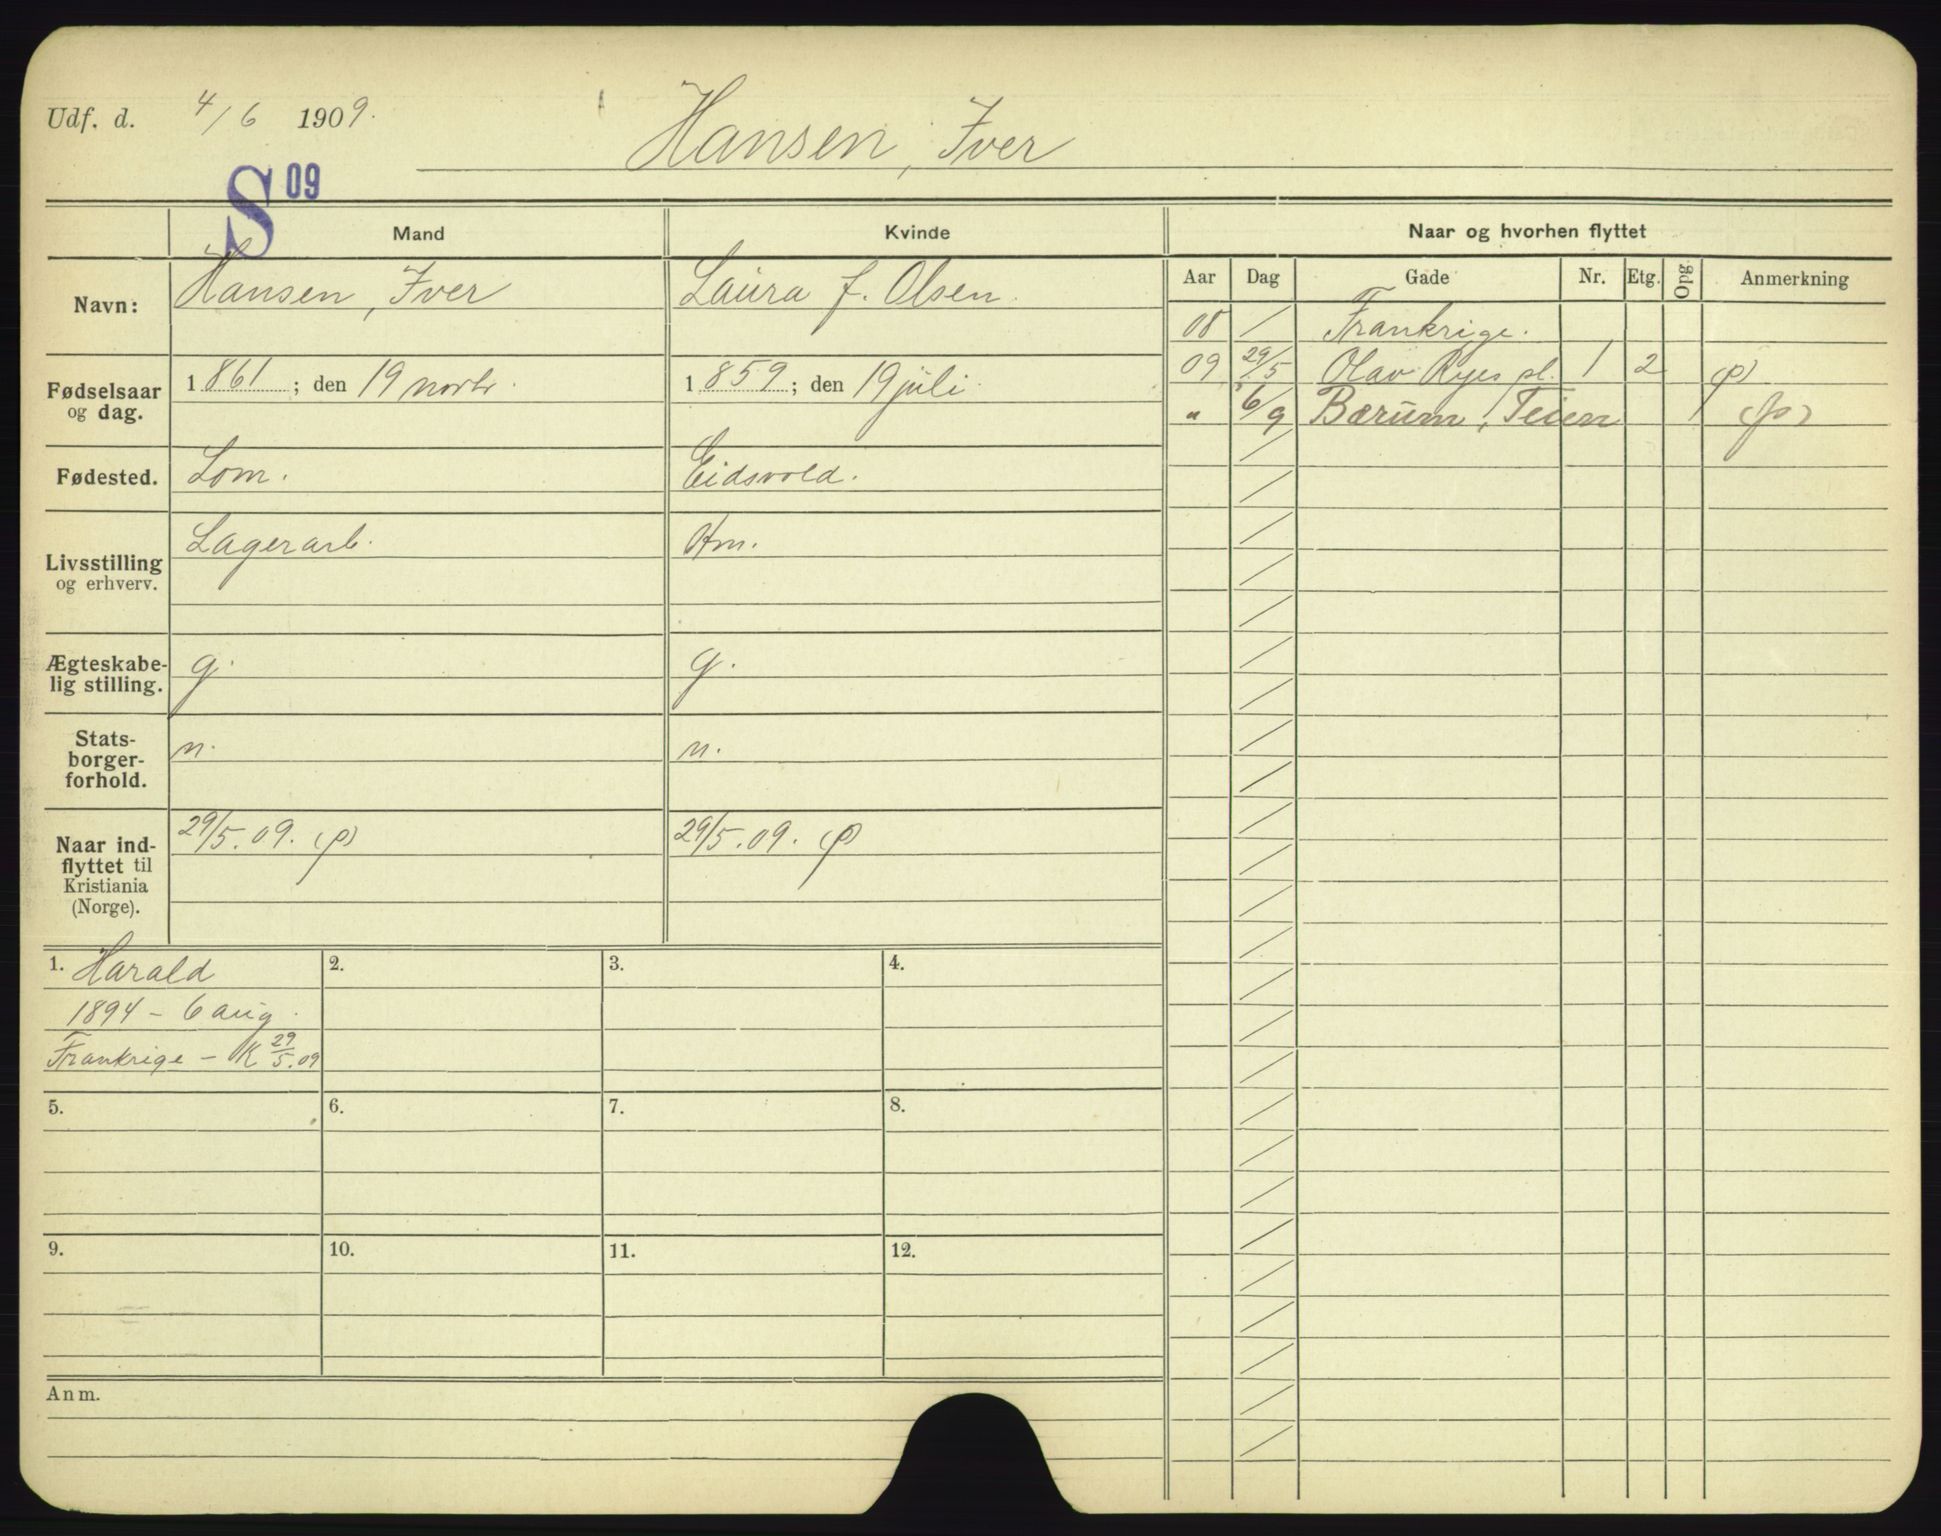 Udf. d. 4/6 1909.
Hansen, Iver
S 09
Mand
Kvinde
Naar og hvorhen flyttet
Navn:
Hansen, Iver
Laura f. Olsen.
Aar
Dag
Gade
Nr.
Etg.
Opg.
Anmerkning
08 / Frankrige.
09 29/5 Olav Ryes pl. 1 2 (p)
" 6/9 Bærum, Teien (p)
Fødselsaar
og dag.
1861; den 19 novbr.
1859; den 19 juli.
Fødested.
Lom.
Eidsvold.
Livsstilling
og erhverv.
Lagerarb.
Hm.
Ægteskabe-
lig stilling.
g.
g.
Stats-
borger-
forhold.
n.
n.
Naar ind-
flyttet til
Kristiania
(Norge).
29/5.09. (p)
29/5.09. (p)
1. Harald
1894 - 6 aug.
Frankrige - K 29/5.09
2.
3.
4.
5.
6.
7.
8.
9.
10.
11.
12.
Anm.